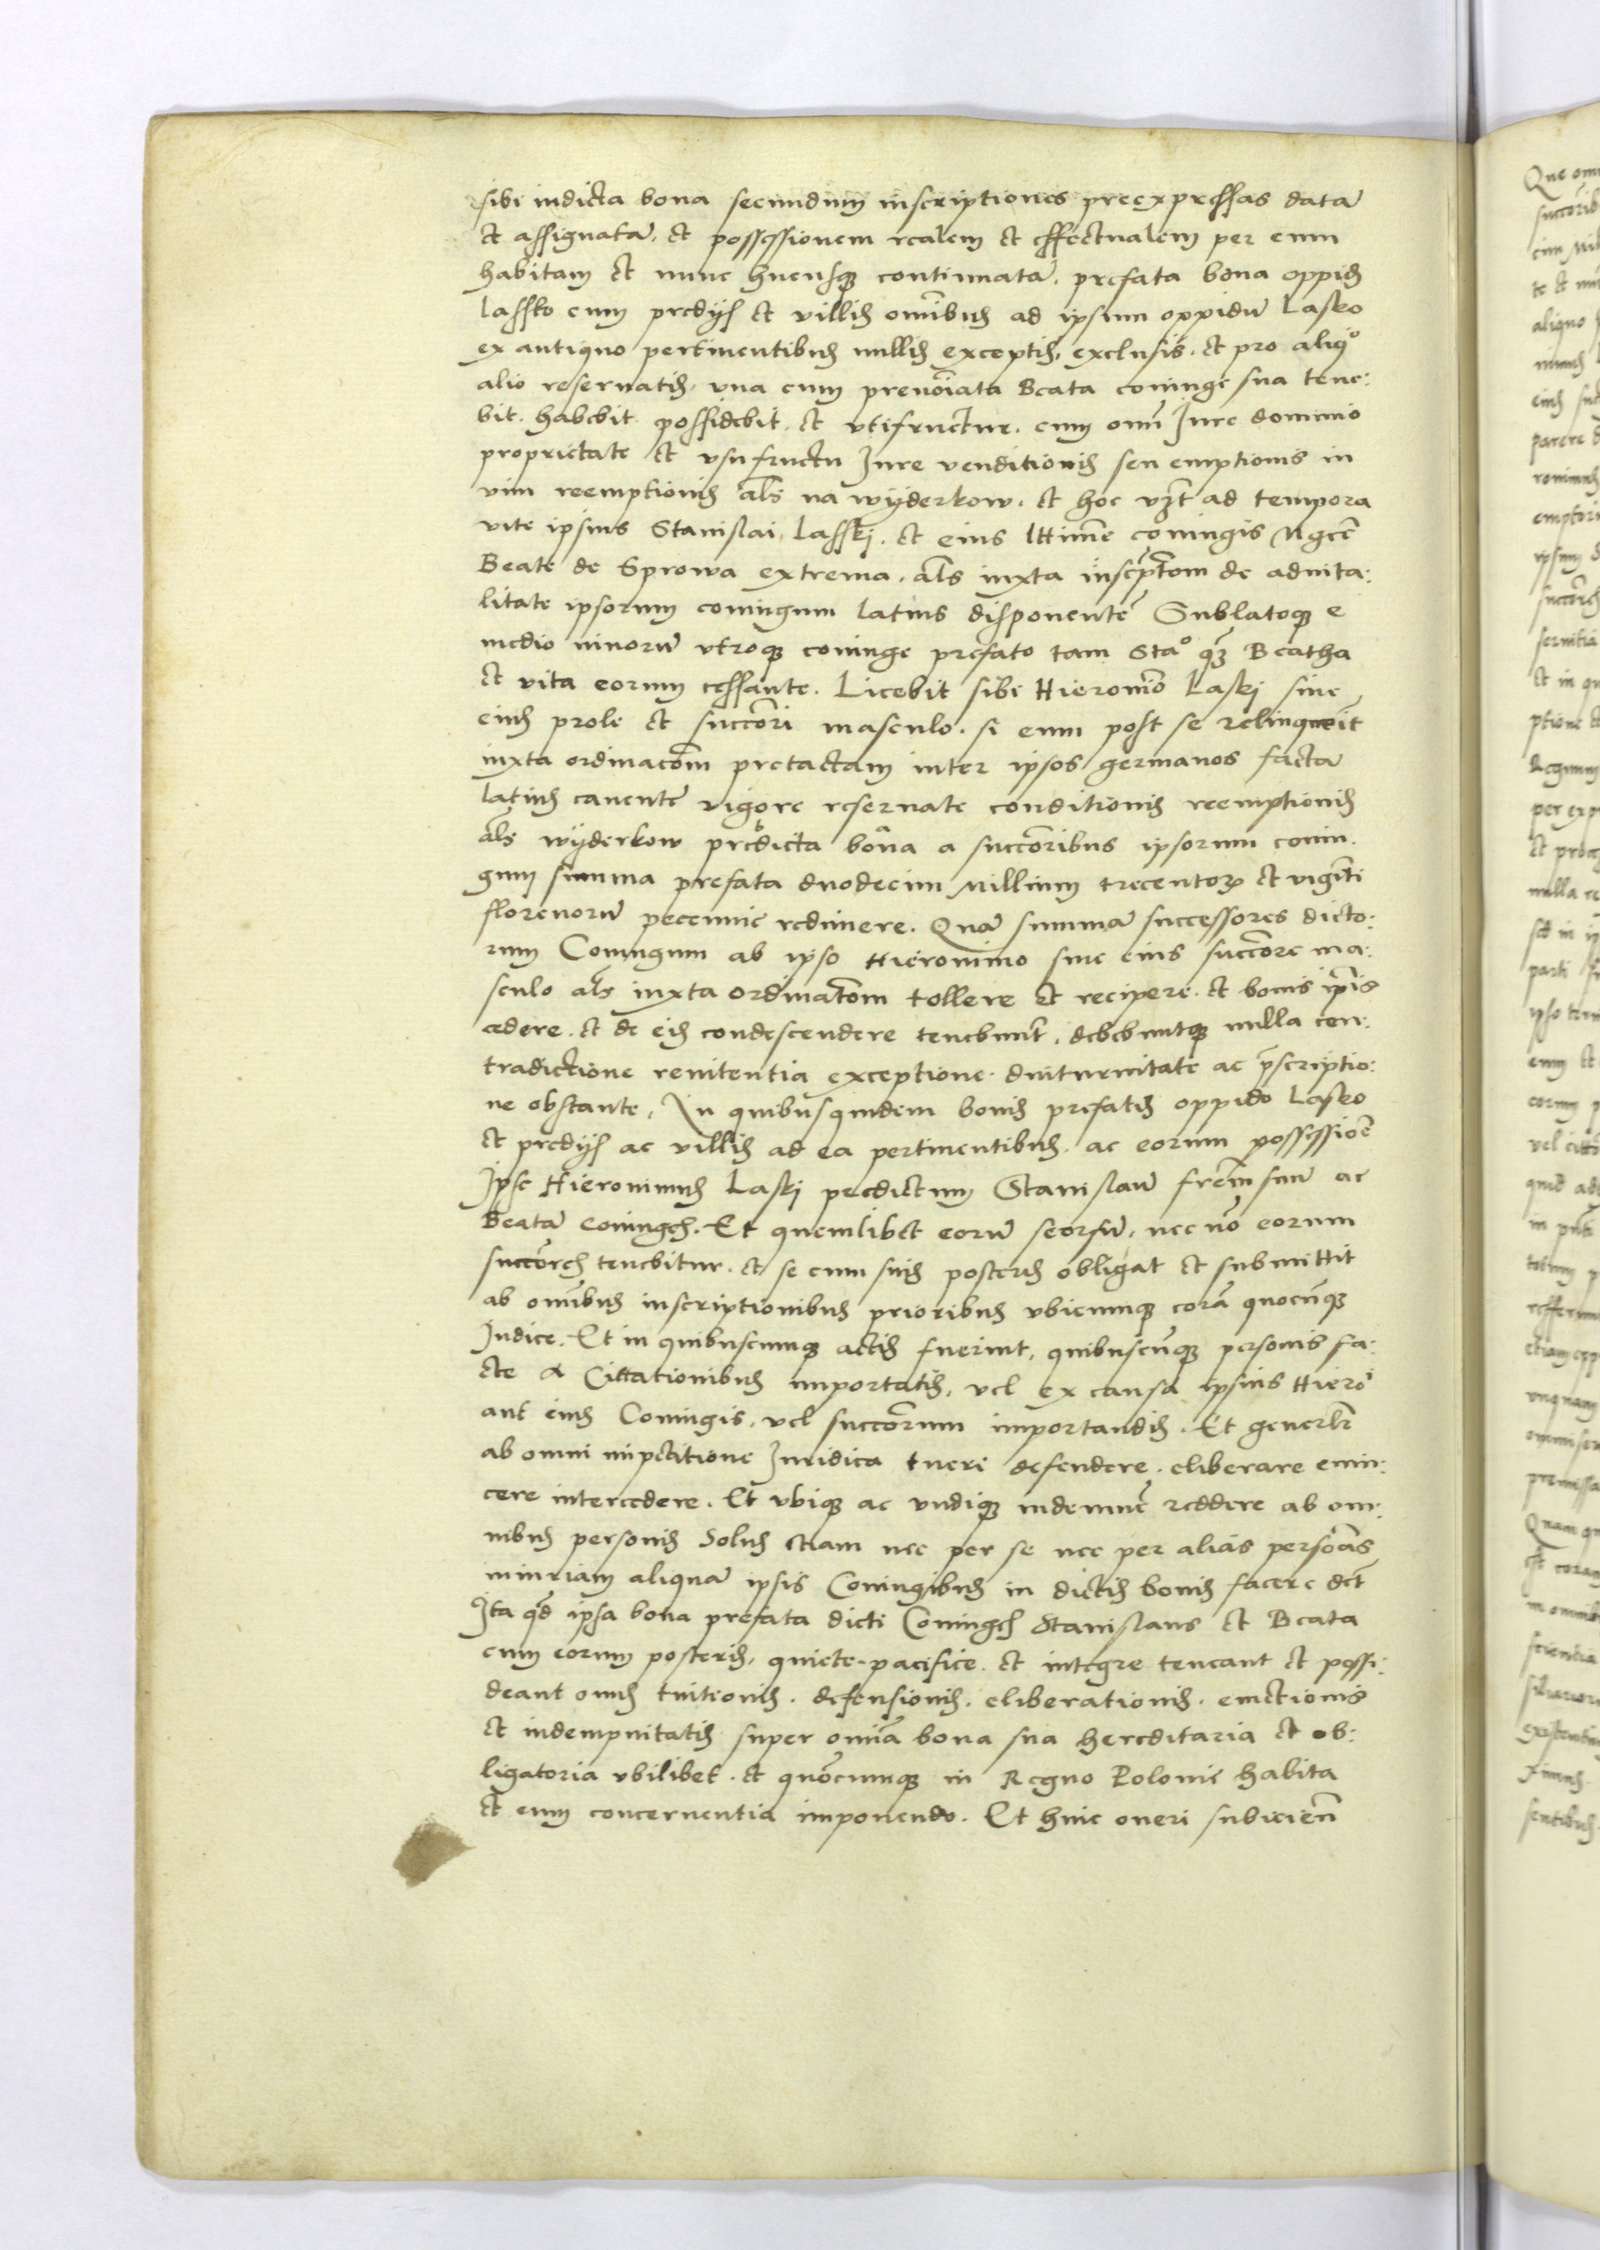 sibi indicta bona secundum inscriptiones preexpressas datā
et assignatā. et possessionem realem et effectualem per eum
habitam et nunc hucusqȝ continuatā. prefata bona oppidȝ
Lassko cum predijs et villis oīmbus ad ipsum oppidū Lasko
ex antiquo pertinentibus nullis exceptis, exclusis. et pro aliqº
alio reseruatis, vna cum prenoīata Beata coniuge sua tene:
bit. habebit possidebit. et vtifruetur. cum omī Iure dominio
proprietate et vsufructu Iure venditionis seu emptionis in
vim reemptionis als na wyderkow. et hoc vzt ad tempora
vite ipsius Stanislai Lasski. et eius lttime coniugis Mgce
Beate de Sprowa extrema. als iuxta inscptom de aduita:
litate ipsorum coniugum latius disponentē Sublatoqȝ e
medio viuorū vtroqȝ coniuge prefato tam Staº qȝ Beatha
et vita eorum cessante. Licebit sibi Hieronimo Laski siue
eius prole et succori masculo. si eum post se relinqueīt
iuxta ordinacom pretactam inter ipsos germanos factā
latius cauentē vigore reseruate conditionis reemptionis
als wyderkow predicta bona a succoribus ipsorum coniu.
gum summa prefata duodecim Millium trecentoꝝ et viginti
florenorū pecunie redimere. Quā summā successores dicto:
rum Coniugum ab ipso Hieronimo siue eius succore ma:
sculo als iuxta ordinatom tollere et recipere. et bonis ipsis
cedere. et de eis condescendere tenebunt, debebuntqȝ nulla con:
tradictione renitentia exceptione. diuturnitate ac pscriptio:
ne obstante, In quibusquidem bonis prefatis oppido Lasko
et predijs ac villis ad ea pertinentibus. ac eorum possessiōe
Ipse Hieronimus Laski predictum Stanislaū frem suū ac
Beatā coniuges. Et quemlibet eorū seorsū, nec nō eorum
succores tenebitur. et se cum suis posteris obligat et submittit
ab omībus inscriptionibus prioribus vbicumqȝ corā quocūqȝ
Iudice. Et in quibuscumqȝ actis fuerint, quibuscūqȝ personis fa:
cte & Cittationibus importatis, vel ex causa ipsius Hierō
aut eius Coniugis, vel succorum importandis. Et generlr
ab omni impetitione Iuridica tueri defendere. eliberare euin:
cere intercedere. Et vbiqȝ ac vndiqȝ indemnē reddere ab om:
nibus personis Solus etiam nec per se nec per alias persoās
iniuriam aliquā ipsis Coniugibus in dictis bonis facere det
Ita qd ipsa bona prefata dicti Coniuges Stanislaus et Beata
cum eorum posteris, quiete. pacifice. et integre teneant et possi:
deant onus tuitionis. defensionis. eliberationis. euictionis
et indempnitatis super omīa bona sua hereditaria et ob:
ligatoria vbilibet. et quōcumqȝ in Regno Polonie habita
et eum concernentia imponendo. Et huic oneri subiicien